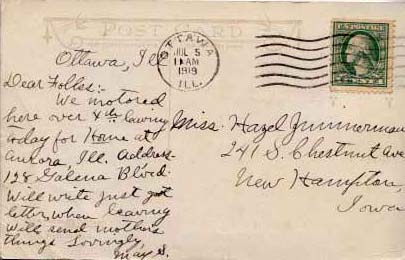 POST CARD
OTTAWA
JUL 5
11 AM
1919
ILL.
U.S. POSTAGE
Ottawa, Ill
Dear Folks:-
We motored
here over 4th leaving
today for Home at
Aurora, Ill. Address
128 Galena Blvd.
Will write just got
letter, when leaving
Will send mothers
things Lovingly,
May S.
Miss. Hazel Zimmerman
241 S. Chestnut Ave
New Hampton,
Iowa